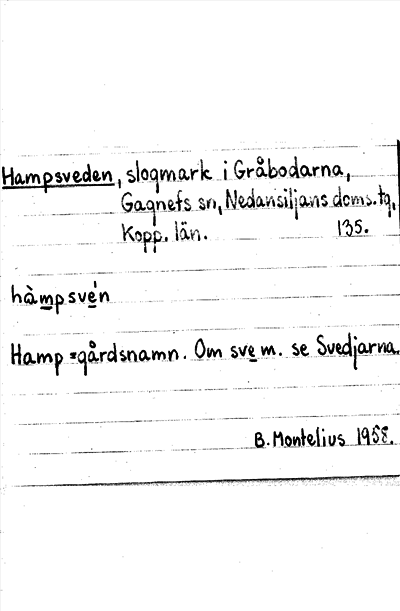 Hampsveden, slogmark i Gråbodarna,
Gagnefs sn, Nedansiljans doms. tg,
Kopp. län. 135.
hàmpsve´n
Hamp = gårdsnamn. Om sve m. se Svedjarna.
B. Montelius 1958.